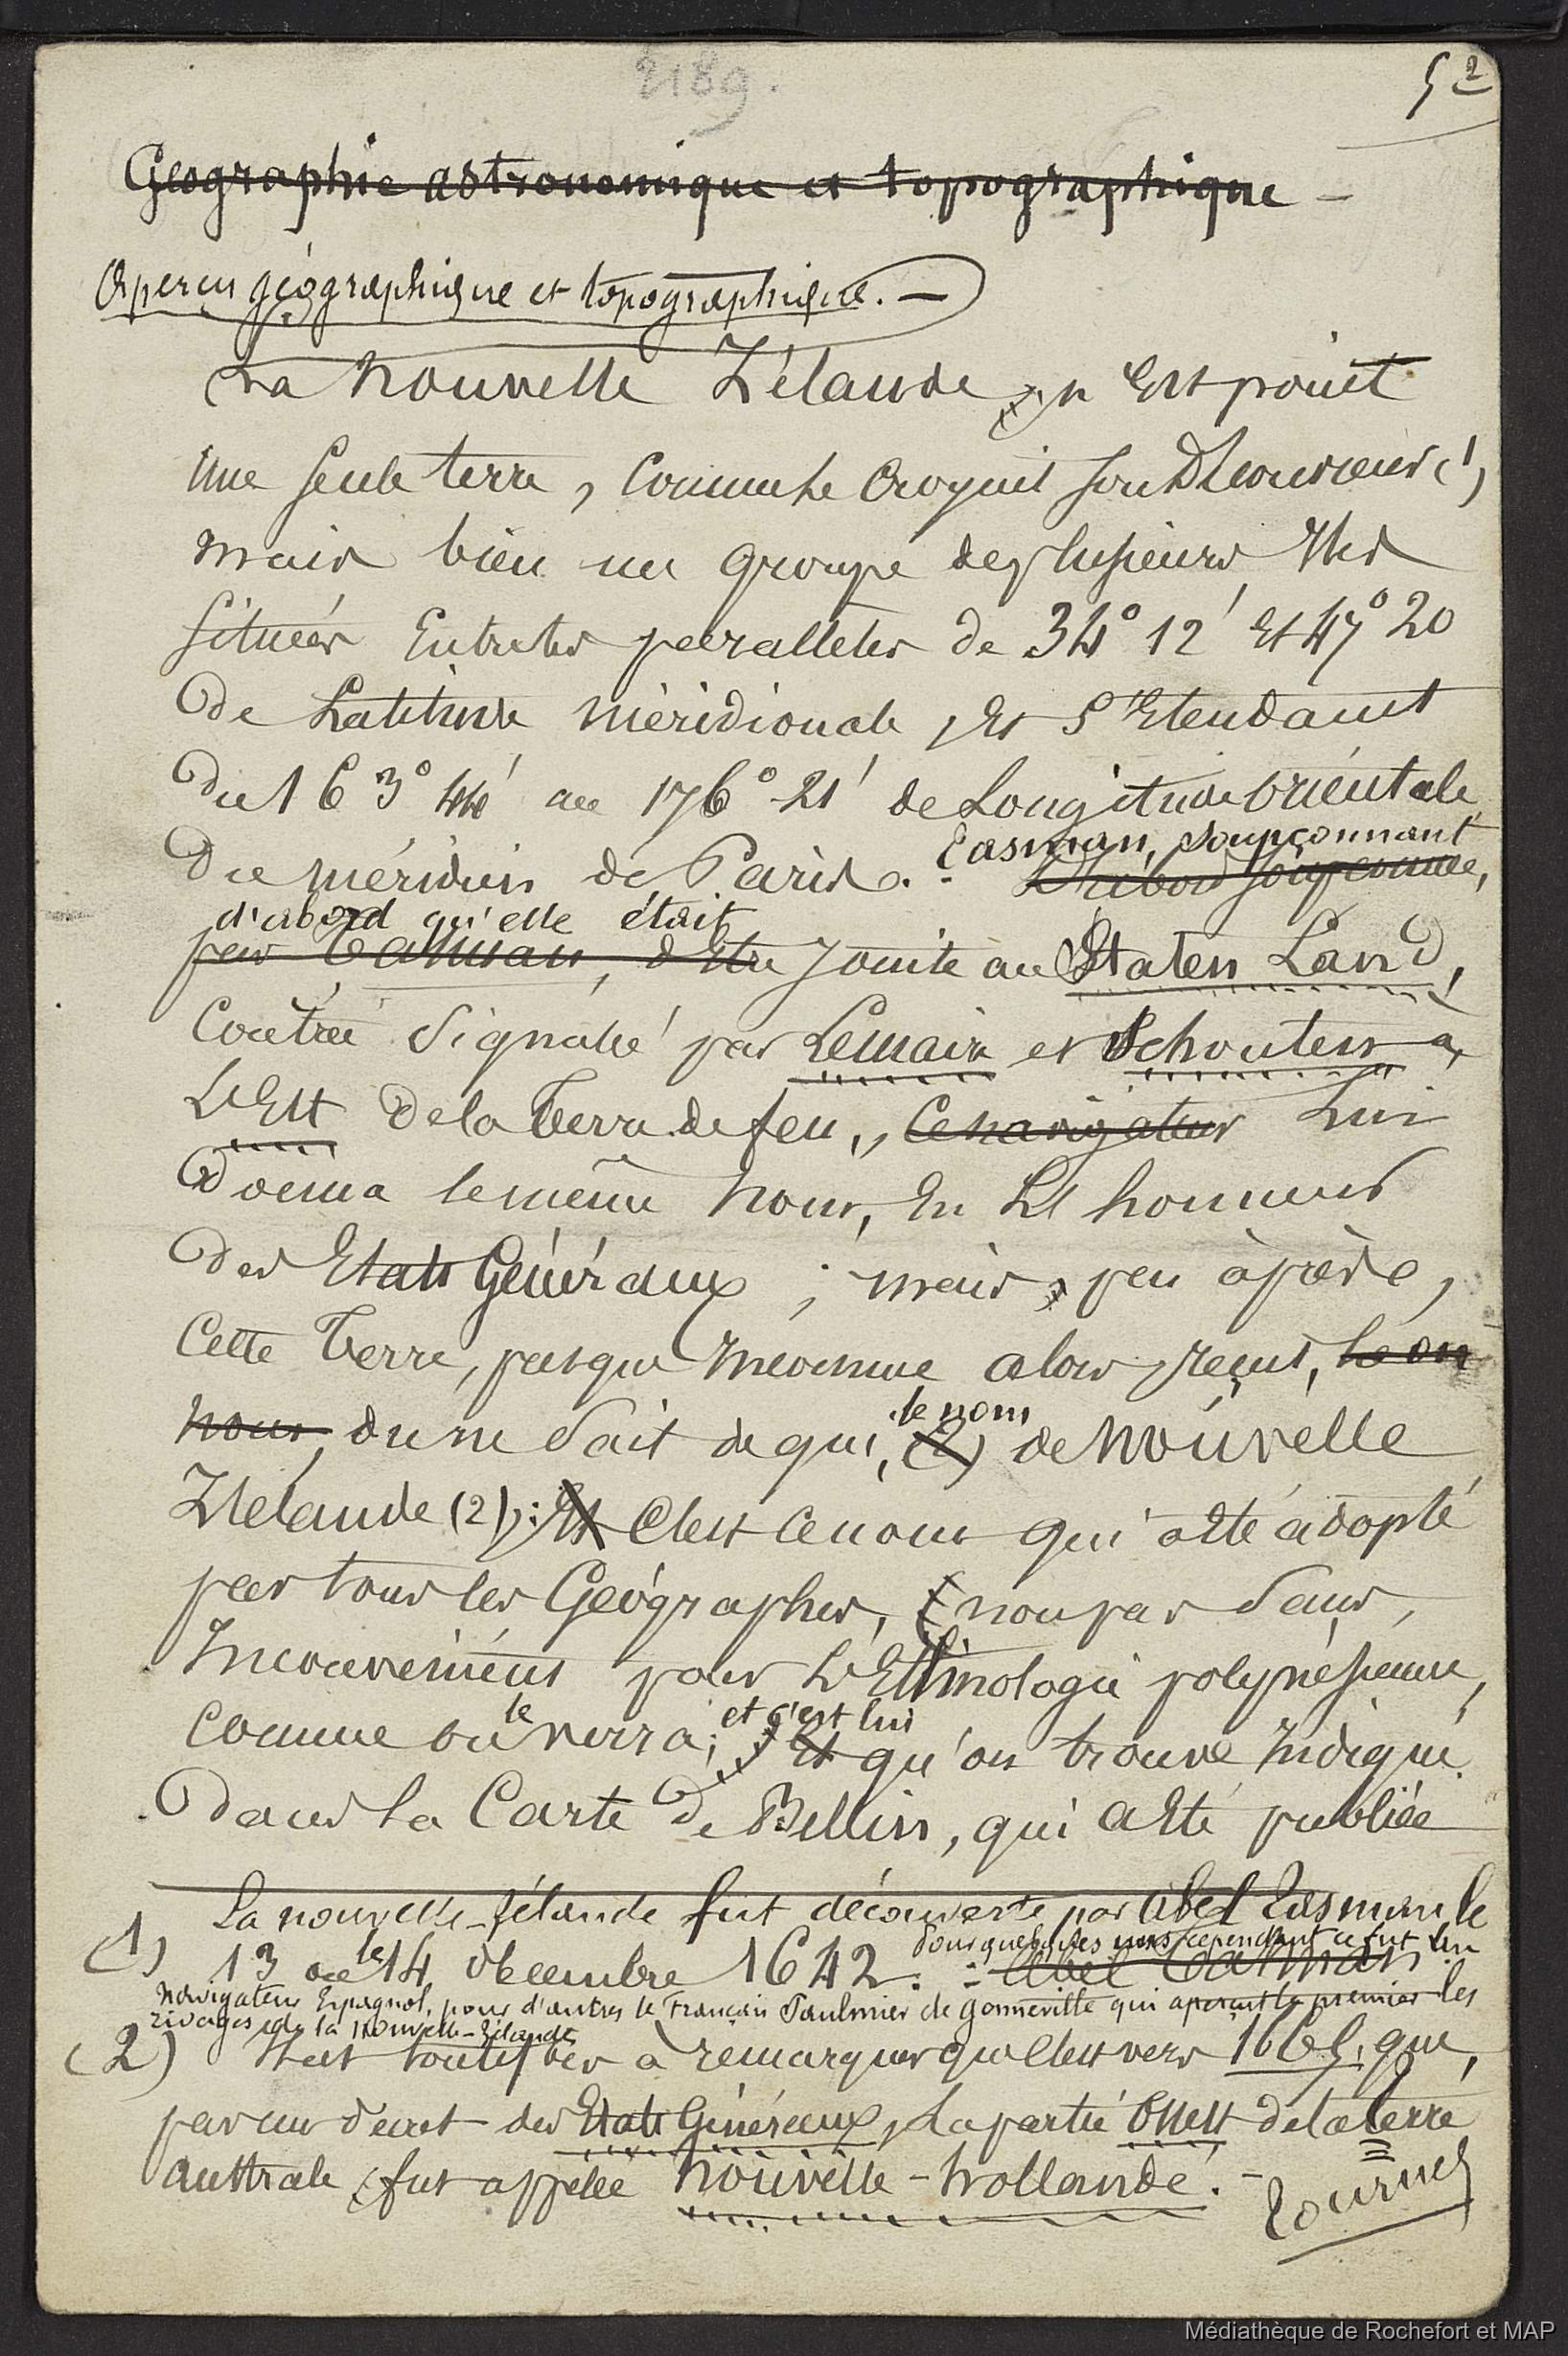 2189.
5 2
Géographie astronomique et topographique —
Aperçu géographique et topographique. —
La Nouvelle Zélande n'est point
une seule terre, comme le croyait son Découvreur (1)
mais bien un groupe de plusieurs Iles
situées entre les parallèles de 34° 12' et 47° 20
de Latitude méridionale, et s'étendant
du 163° 44' au 176° 21' de Longitude orientale
Tasman, soupçonnant
du méridien de Paris. - D'abord soupçonnée,
d'abord qu'elle était
par Tasman, d'être jointe au Staten Land,
Contrée signalée par Lemaire et Schouten à
L'Est de la Terre de feu, Ce navigateur lui
donna le même nom, en L'honneur
des Etats Généraux ; mais, peu après,
Cette Terre, presque inconnue alors, reçut, le on
le nom
nom, du ne sait de qui, (2) de Nouvelle
Zélande (2); Et C'est ce nom qui a été adopté
par tous les Géographes, non pas sans,
Inconvénients pour L'Ethnologie polynésienne,
et c'est lui
comme on le verra; Et qu'on trouve indiqué
dans la Carte de Bellin, qui a été publiée
(1) La nouvelle-Zélande fut découverte par Abel Tasman le
13 ou le 14 décembre 1642. - Abel Tasman
Pour quelques uns cependant ce fut un
Navigateur Espagnol, pour d'autres le Français Paulmier de Gonneville qui aperçut le premier les
rivages de la Nouvelle-Zélande
(2) Il est toutefois à remarquer que c'est vers 1665, que,
par un décret des Etats Généraux, la partie Ouest de la terre
australe, fut appelée Nouvelle-hollande. -
Tournez
Médiathèque de Rochefort et MAP